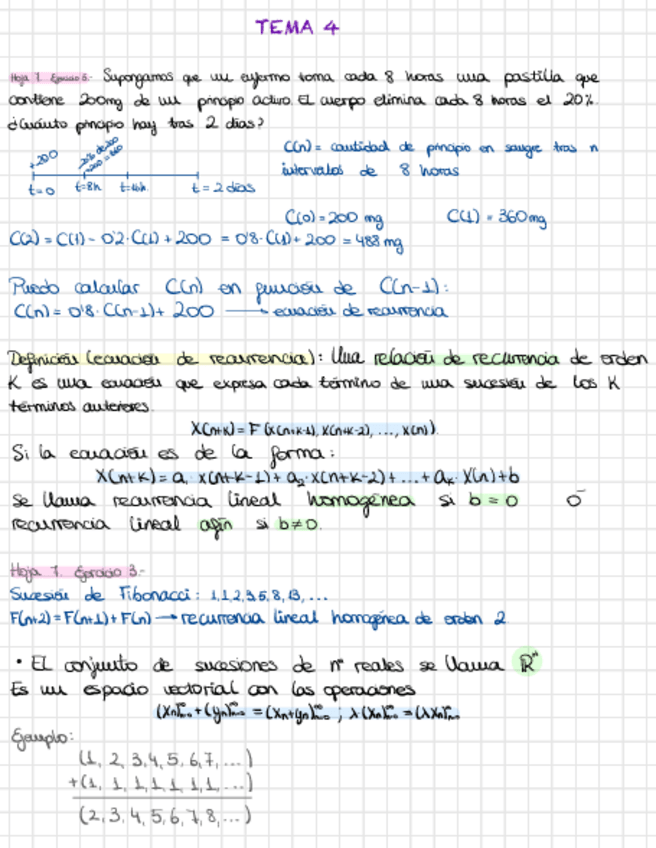 TEMA 4
Hoja 7. Ejercicio 5:- Supongamos que un enfermo toma cada 8 horas una pastilla que
contiene 200mg de un principio activo. El cuerpo elimina cada 8 horas el 20%.
¿Cuánto principio hay tras 2 días?
+200
t=0 t=8h t=16h t=2 días
C(n)= cantidad de principio en sangre tras n
intervalos de 8 horas
C(0)=200 mg C(1)=360mg
C(2)=C(1)-0'2·C(1)+200 = 0'8·C(1)+200 = 488 mg
Puedo calcular C(n) en función de C(n-1):
C(n)= 0'8·C(n-1)+200 → ecuación de recurrencia
Definición (ecuación de recurrencia): Una relación de recurrencia de orden
K es una ecuación que expresa cada término de una sucesión de los K
términos anteriores.
X(n+K)=F(X(n+K-1), X(n+K-2), ..., X(n)).
Si la ecuación es de la forma:
X(n+K)=a₁·X(n+K-1)+a₂·X(n+K-2)+...+aₖ·X(n)+b
se llama recurrencia lineal homogénea si b=0 ó
recurrencia lineal afín si b≠0.
Hoja 7. Ejercicio 3:-
Sucesión de Fibonacci: 1,1,2,3,5,8,13,...
F(n+2)=F(n+1)+F(n) → recurrencia lineal homogénea de orden 2
• El conjunto de sucesiones de nº reales se llama ℝᴺ
Es un espacio vectorial con las operaciones
(xn)ₙ₌₀^∞+(yn)ₙ₌₀^∞=(xn+yn)ₙ₌₀^∞ ; λ(xn)ₙ₌₀^∞=(λxn)ₙ₌₀^∞
Ejemplo:
(1, 2, 3, 4, 5, 6, 7, ...)
+(1, 1, 1, 1, 1, 1, 1, ...)
(2, 3, 4, 5, 6, 7, 8, ...)